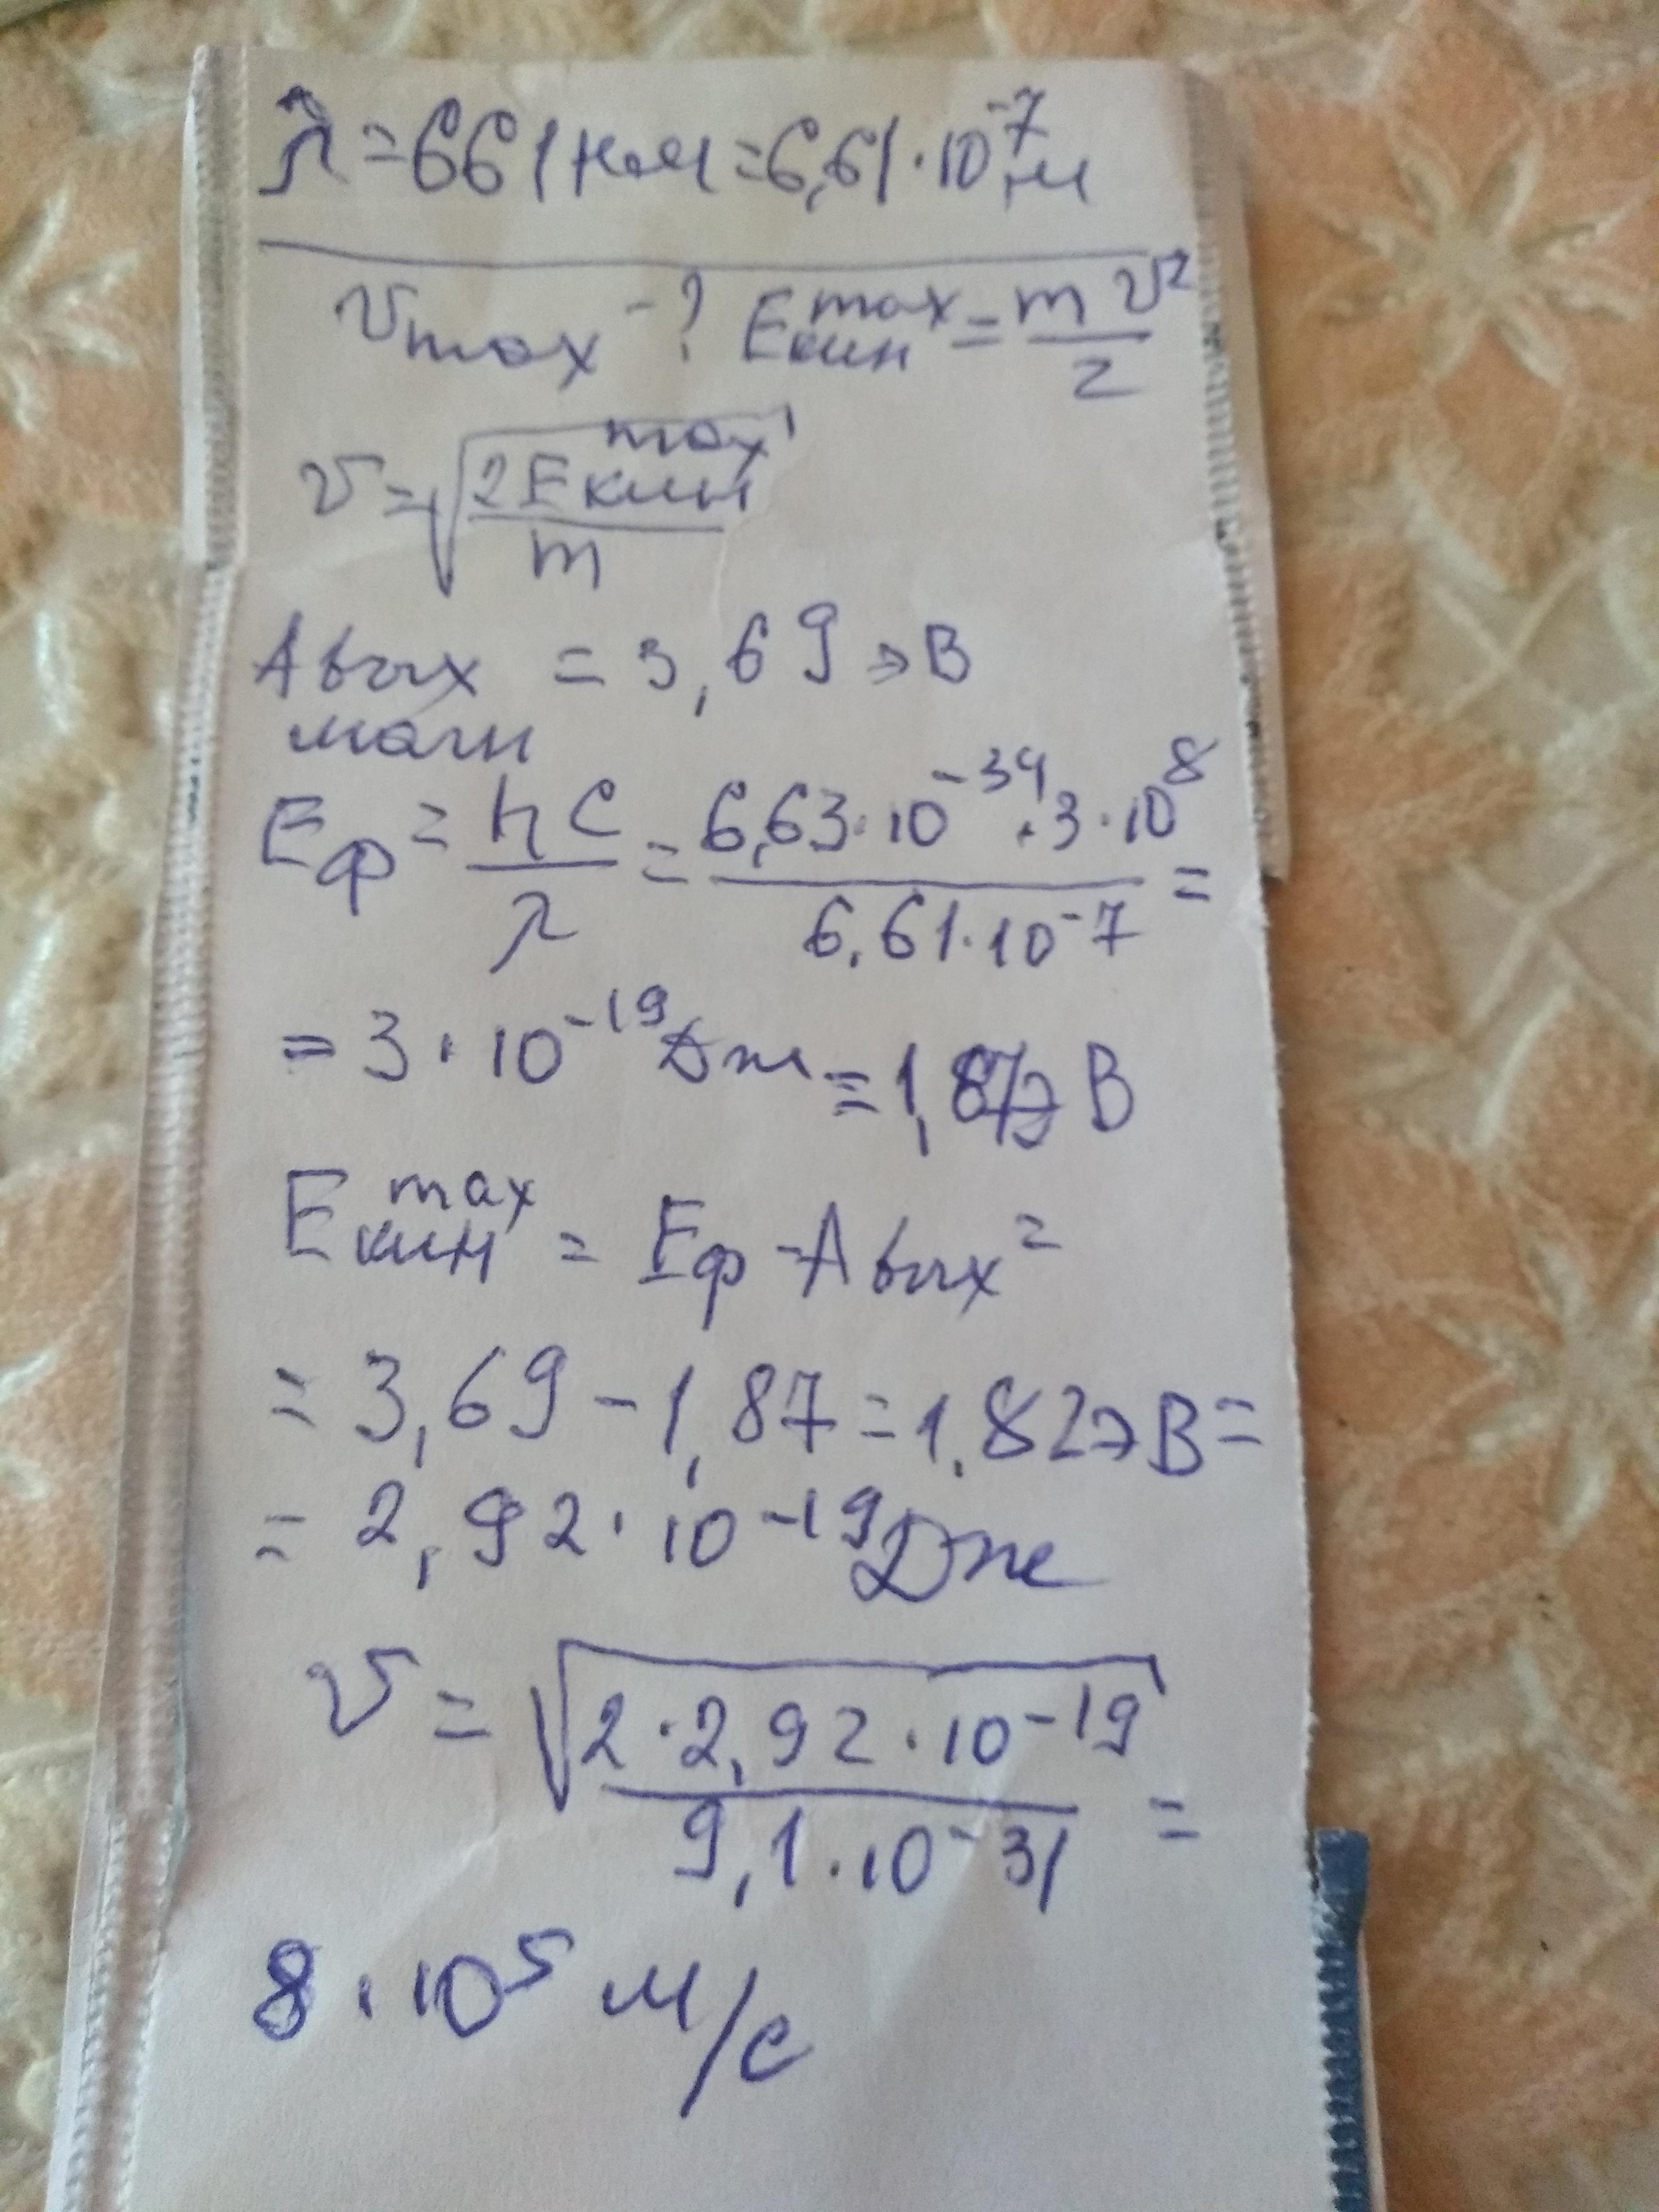 λ = 661 нм = 6,61 · 10⁻⁷ м
υmax - ? Eкин^max = mυ²/2
υ = √(2Eкин^max/m)
Aвых = 3,69 эВ
магн
Eф = hc/λ = 6,63 · 10⁻³⁴ · 3 · 10⁸ / 6,61 · 10⁻⁷ =
= 3 · 10⁻¹⁹ Дж = 1,87 эВ
Eкин^max = Eф - Aвых =
= 3,69 - 1,87 = 1,82 эВ =
= 2,92 · 10⁻¹⁹ Дж
υ = √(2 · 2,92 · 10⁻¹⁹ / 9,1 · 10⁻³¹) =
8 · 10⁵ м/с